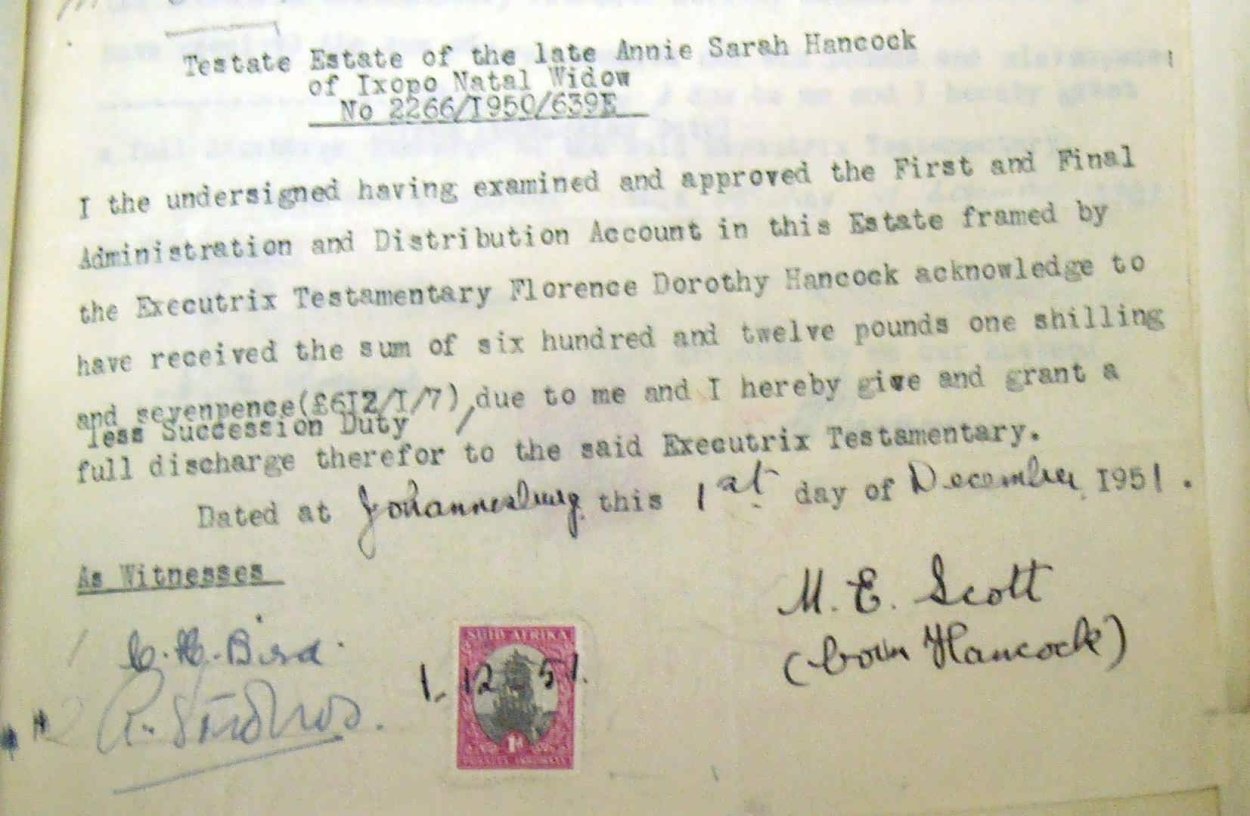 Testate Estate of the late Annie Sarah Hancock
of Ixopo Natal Widow
No 2266/I950/639E
I the undersigned having examined and approved the First and Final
Administration and Distribution Account in this Estate framed by
the Executrix Testamentary Florence Dorothy Hancock acknowledge to
have received the sum of six hundred and twelve pounds one shilling
and sevenpence(£6I2/I/7),due to me and I hereby give and grant a
less Succession Duty /
full discharge therefor to the said Executrix Testamentary.
Dated at Johannesburg this 1st day of December I951.
As Witnesses
M. E. Scott
(born Hancock)
1
2
SUID AFRIKA
1. 12 51.
1D